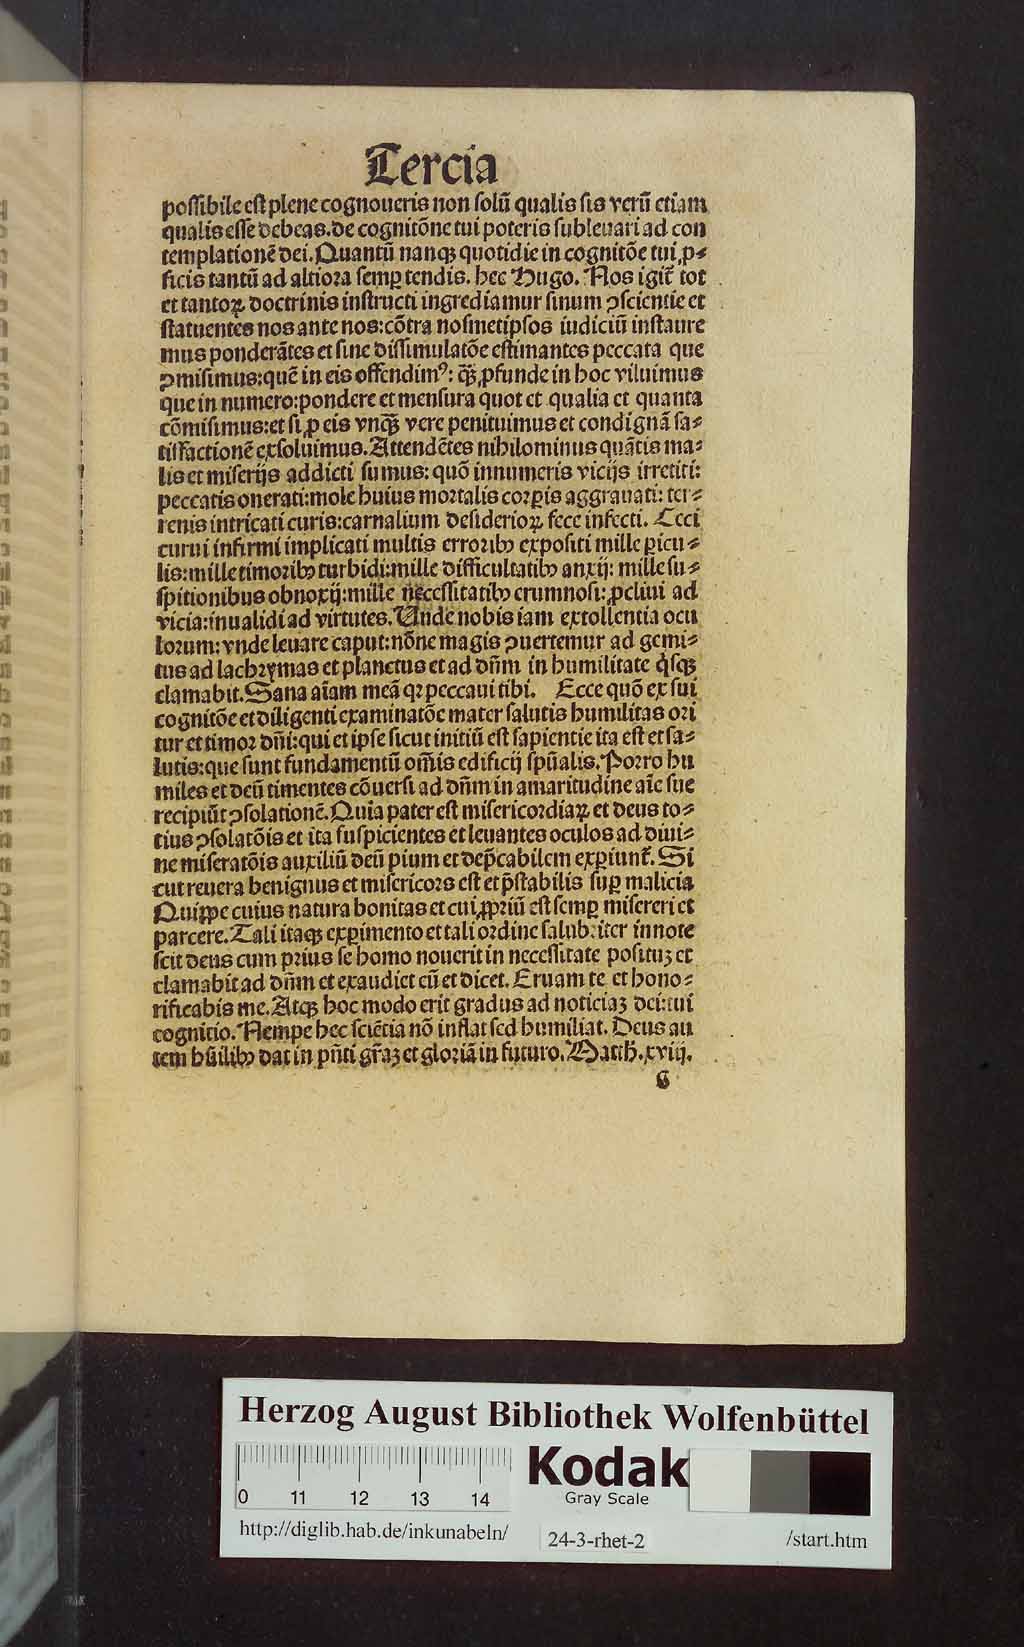 Tercia
possibile est plene cognoueris non solū qualis sis verū etiam
qualis esse debeas. de cognitōne tui poteris subleuari ad con
templationē dei. Quantū nanqꝫ quotidie in cognitōe tui ꝓ⸗
ficis tantū ad altiora semꝑ tendis. hec Hugo. Nos igit̄ tot
et tantoꝝ doctrinis instructi ingrediamur sinum ꝯscientie et
statuentes nos ante nos: cōtra nosmetipsos iudiciū instaure
mus ponderātes et sine dissimulatōe estimantes peccata que
ꝯmisimus: quē in eis offendimꝰ: qꝫ̄ ꝓfunde in hoc viluimus
que in numero: pondere et mensura quot et qualia et quanta
cōmisimus: et si ꝓ eis vnqꝫ̄ vere penituimus et condignā sa⸗
tisfactionē exsoluimus. Attendētes nihilominus quātis ma⸗
lis et miserijs addicti sumus: quō innumeris vicijs irretiti:
peccatis onerati: mole huius mortalis corꝑis aggrauati: ter⸗
renis intricati curis: carnalium desiderioꝝ fece infecti. Ceci
curui infirmi implicati multis erroribꝫ expositi mille ꝑicu⸗
lis: mille timoribꝫ turbidi: mille difficultatibꝫ anxij: mille su⸗
spitionibus obnoxij: mille necessitatibꝫ erumnosi: ꝓcliui ad
vicia: inualidi ad virtutes. Unde nobis iam extollentia ocu
lorum: vnde leuare caput: nōne magis ꝯuertemur ad gemi⸗
tus ad lachrymas et planctus et ad dn̄m in humilitate qͥsqꝫ
clamabit. Sana aīam meā qꝛ peccaui tibi. Ecce quō ex sui
cognitōe et diligenti examinatōe mater salutis humilitas ori
tur et timor dn̄i: qui et ipse sicut initiū est sapientie ita est et sa⸗
lutis: que sunt fundamentū om̄is edificij spūalis. Porro hu
miles et deū timentes cōuersi ad dn̄m in amaritudine aīe sue
recipiūt ꝯsolationē. Quia pater est misericordiaꝝ et deus to⸗
tius ꝯsolatōis et ita suspicientes et leuantes oculos ad diui⸗
ne miseratōis auxiliū deū pium et dep̄cabilem expiunt̄. Si
cut reuera benignus et misericors est et p̄stabilis suꝑ malicia
Quippe cuius natura bonitas et cui ꝓpriū est semꝑ misereri et
parcere. Tali itaqꝫ exꝑimento et tali ordine salubriter innote
scit deus cum prius se homo nouerit in necessitate positūꝫ et
clamabit ad dn̄m et exaudiet eū et dicet. Eruam te et hono⸗
rificabis me. Atqꝫ hoc modo erit gradus ad noticiaꝫ dei: tui
cognitio. Nempe hec sciētia nō inflat sed humiliat. Deus au
tem hūilibꝫ dat in pn̄ti gr̄aꝫ et gloriā in futuro. Matth̄. xviij.
Herzog August Bibliothek Wolfenbüttel
0 11 12 13 14
Kodak
Gray Scale
http://diglib.hab.de/inkunabeln/ 24-3-rhet-2 /start.htm